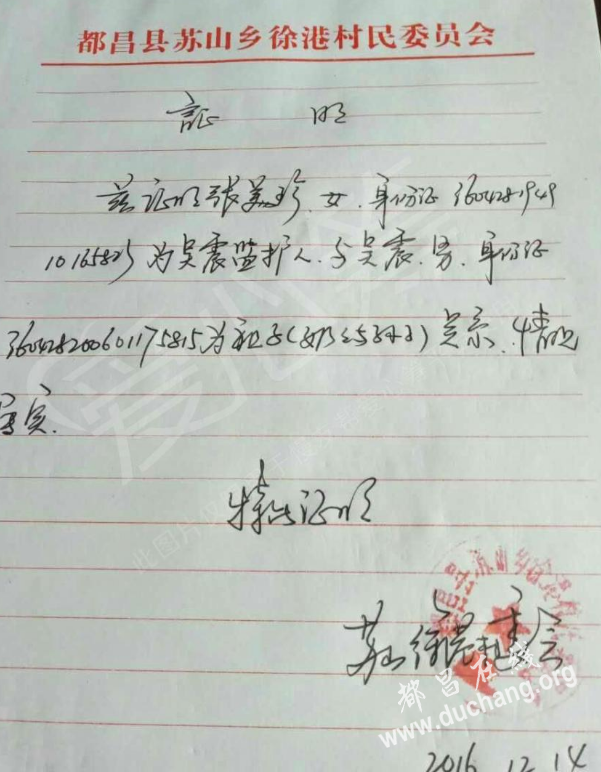 都昌县苏山乡徐港村民委员会
証 明
兹证明张美珍、女、身份证3604281949
为吴震监护人、与吴震、男、身份证
360428200601175815为祖孙(奶奶与孙子)关系、情况
属实.
特此证明
苏山徐港村委会
都昌在线
www.duchang.org
2016.12.14